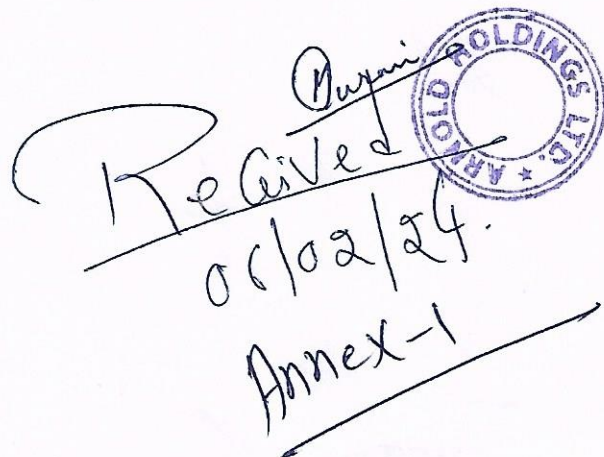 ARNOLD HOLDINGS LTD. ★
Recived
06/02/24.
Annex-1